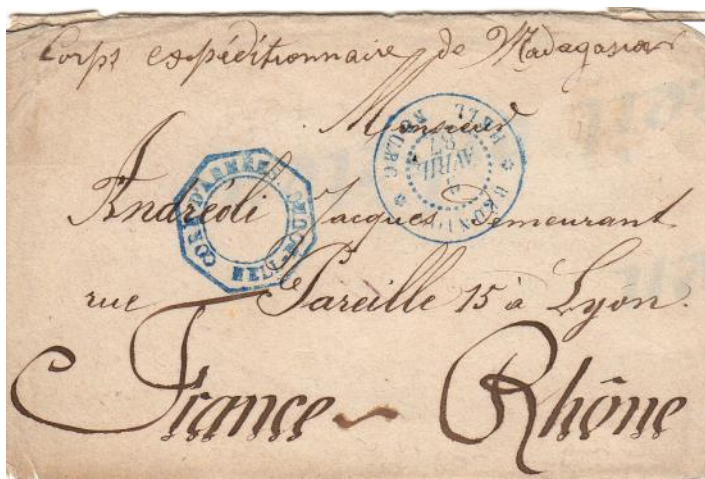 Corps expéditionnaire de Madagascar
Monsieur
Andréoli Jacques Demeurant
rue Pareille 15 à Lyon.
France ~ Rhône
CORR. D'ARMÉES
REUNION
HELL BOURG
AVRIL
87